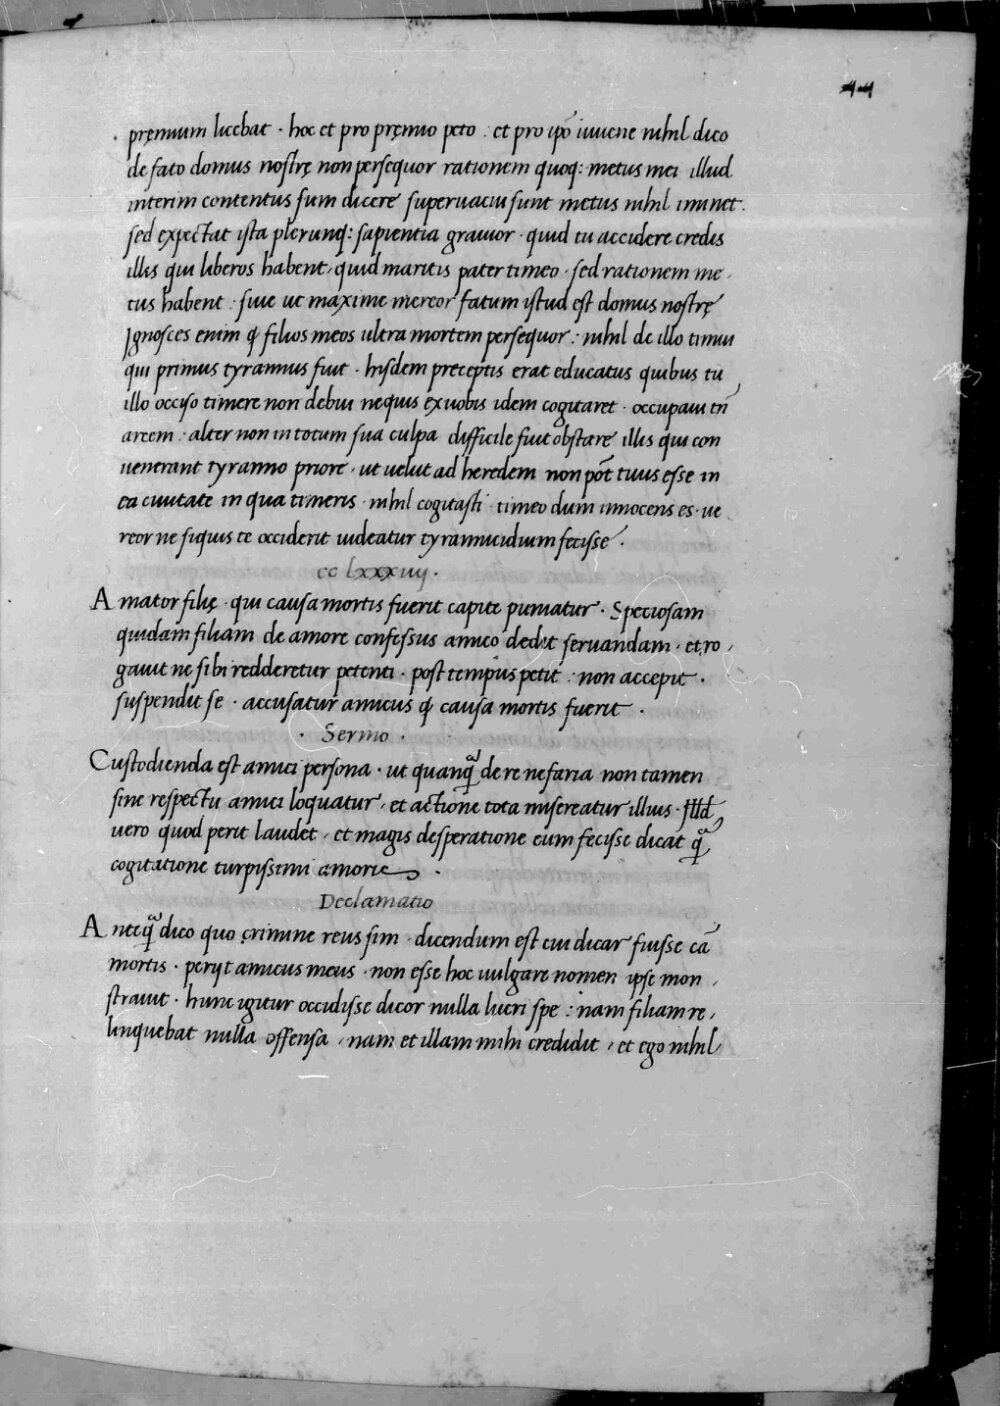 44
pręmium licebat · hoc et pro pręmio peto : et pro ipõ iuuene nihil dico
de fato domus nostrę non persequor rationem quoq: metus mei illud
interim contentus sum dicere superuacui sunt metus nihil iminet.
sed expectat ista plerunq: sapientia grauior · quid tu accidere credis
illis qui liberos habent, quid maritis pater timeo · sed rationem me,
tus habent : siue ut maxime mereor fatum istud est domus nostrę
Ignosces enim q̃ filios meos ultra mortem persequor : nihil de illo timui
qui primus tyrannus fuit · hisdem preceptis erat educatus quibus tu
illo occiso timere non debui nequis ex uobis idem cogitaret · occupauit tñ
arcem : alter non in totum sua culpa difficile fuit obstare illis qui con
uenerant tyranno priore, ut uelut ad heredem non põt tuus esse in
ea ciuitate in qua timeris · nihil cogitasti · timeo dum innocens es · ue
reor ne siquis te occiderit uideatur tyrannicidium fecisse ·
cclxxxiiij ·
Amator filię · qui causa mortis fuerit capite puniatur · Speciosam
quidam filiam de amore confessus amico dedit seruandam · et ro,
gauit ne sibi redderetur petenti · post tempus petit : non accepit ·
suspendit se · accusatur amicus q̃ causa mortis fuerit ·
· Sermo ·
Custodienda est amici persona · ut quanq̃ de re nefaria non tamen
sine respectu amici loquatur, et actione tota misereatur illius · Illd,
uero quod perit laudet, et magis desperatione eum fecisse dicat q̃
cogitatione turpissimi amoris ·
Declamatio
Anteq̃ dico quo crimine reus sim · dicendum est cui dicar fuisse cã
mortis · perijt amicus meus · non esse hoc uulgare nomen ipse mon,
strauit · hunc igitur occidisse dicor nulla lucri spe : nam filiam re,
linquebat nulla offensa, nam et illam mihi credidit, et ego nihil